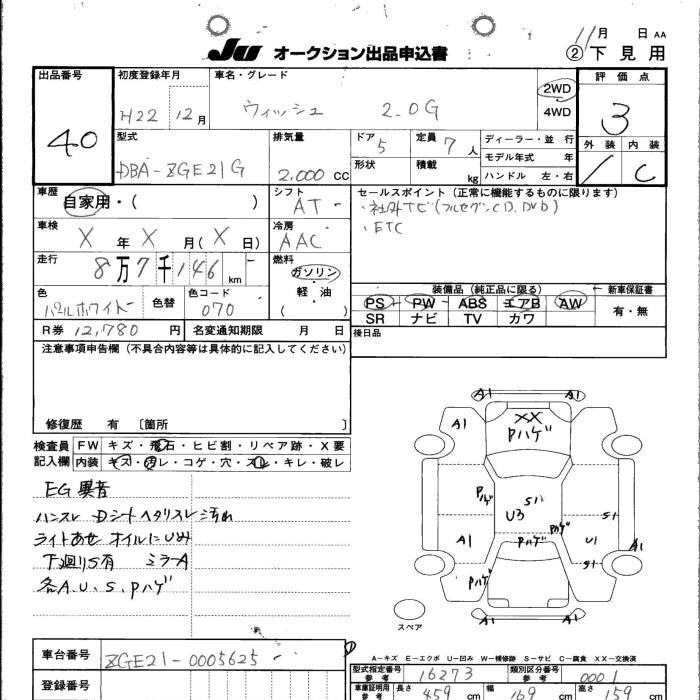 11月 日 AA
JU オークション出品申込書 ②下見用
出品番号 初度登録年月 車名・グレード 2WD 4WD 評価点
40 H22 12月 ウィッシュ 2.0G 3
型式 排気量 ドア 5 定員 7人 ディーラー・並行 外装 内装
DBA-ZGE21G 2.000 CC 形状 積載 kg モデル年式 年 / C
ハンドル 左・右
車歴 自家用・( ) シフト AT セールスポイント(正常に機能するものに限ります)
・社外ナビ(フルセグ、CD、DVD)
・ETC
車検 X 年 X 月(X 日) 冷房 AAC
走行 8万7千146km 燃料 ガソリン 軽・油 ( )
装備品(純正品に限る) 新車保証書
色 パールホワイト 色替 色コード 070
PS PW ABS エアB AW 有・無
SR ナビ TV カワ
R券 12,780 円 名変通知期限 月 日 後日品
注意事項申告欄(不具合内容等は具体的に記入してください)
修復歴 有 〔箇所 〕
検査員記入欄 FW キズ・飛石・ヒビ割・リペア跡・X要
内装 キズ・汚レ・コゲ・穴・スレ・キレ・破レ
EG異音
ハンスレ Dシートヘタリスレ汚れ
ライトあせ オイルにじみ
下廻りS有 ミラーA
各A.U.S.Pハゲ
A1 A1
A1 XX Pハゲ
Pハゲ S1 S1
U3 Pハゲ
A1 Pハゲ U1 A1
S1
Pハゲ
A1 A1
スペア
A-キズ E-エクボ U-凹み W-補修跡 S-サビ C-腐食 XX-交換済
車台番号 ZGE21-0005625
型式指定番号 参考 16273 類別区分番号 参考 0001
登録番号
車庫証明用 参考 長さ 459 cm 幅 169 cm 高さ 159 cm